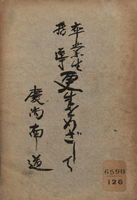 卒業生
指導
更生をめざして
慶尚南道
6590
126